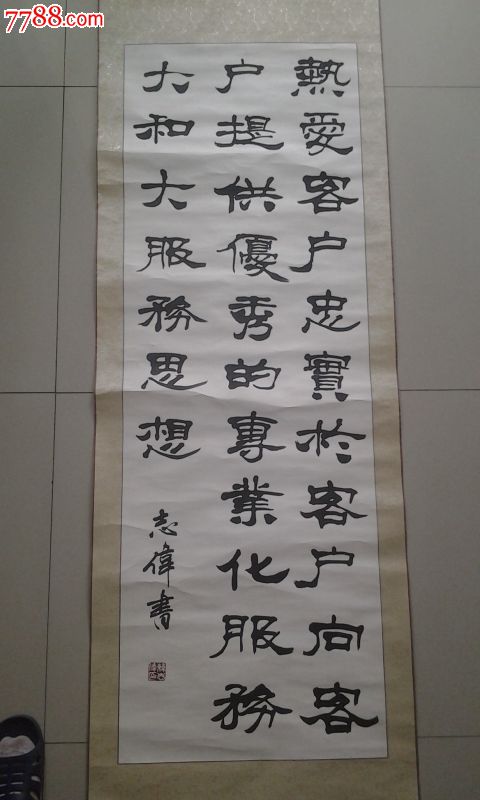 7788.com
熱愛客户忠實於客户向客
户提供優秀的專業化服務
大和大服務思想
志偉書